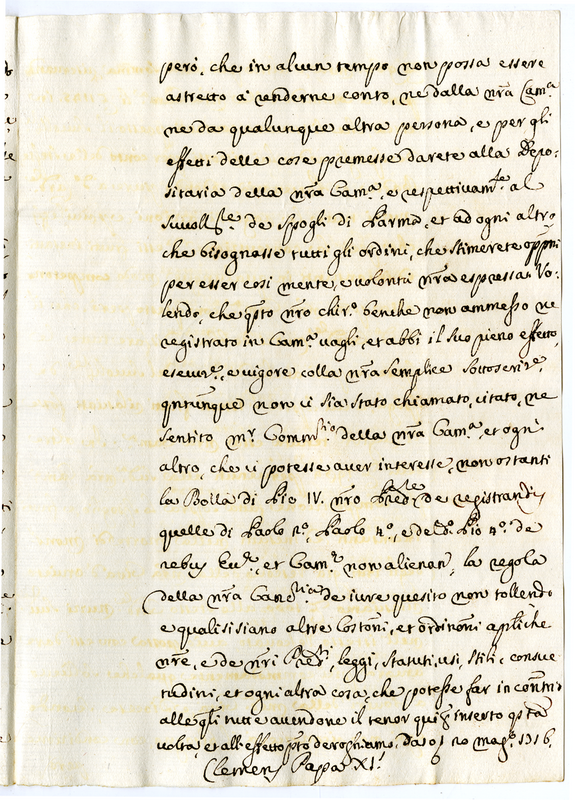 però, che in alcun tempo non possa essere
astretto à renderne conto, ne dalla nrã Cam.ª
ne da qualunque altra persona, e per gli
effetti delle cose premesse darete alla Depo-
sitaria della nrã Cam.ª, e respettivam.te al
de Spogli di Parma, et ad ogni altro,
che bisognasse tutti gli ordini, che stimerete opp̃ni
per esser così mente, e volontà nrã espressa: Vo-
lendo, che q̃sto nrõ chir.º benche non ammesso ne
registrato in Cam.ª vaglia, et abbi il suo pieno effetto,
esecuz.e, e vigore colla nrã semplice sottoscriz.e,
qntunque non vi sia stato chiamato, citato, ne
sentito m.r Comm.rio della nrã Cam.ª, et ogni
altro, che vi potesse aver interesse, non ostanti
la Bolla di Pio IV. nrõ Pred.re de registrandis
quelle di Paolo Paolo 4.º, e de Pio 4.º de
rebus Ecc.æ, et Cam.æ non alienan., la regola
della nrã Canc.ria de iure quesito non tollendo
e qualisisiano altre Costõni, et ordinõni ap̃liche
nrẽ, e de nrĩ Pred.ri, leggi, statuti, usi, stili, e consue-
tudini, et ogni altra cosa, che potesse far in contrº
alle q̃li tutte avendone il tenor qui inserto q̃sta
volta, et all'effetto p̃to deroghiamo. Dato 20 mag.º 1716.
Clemens Papa XI.